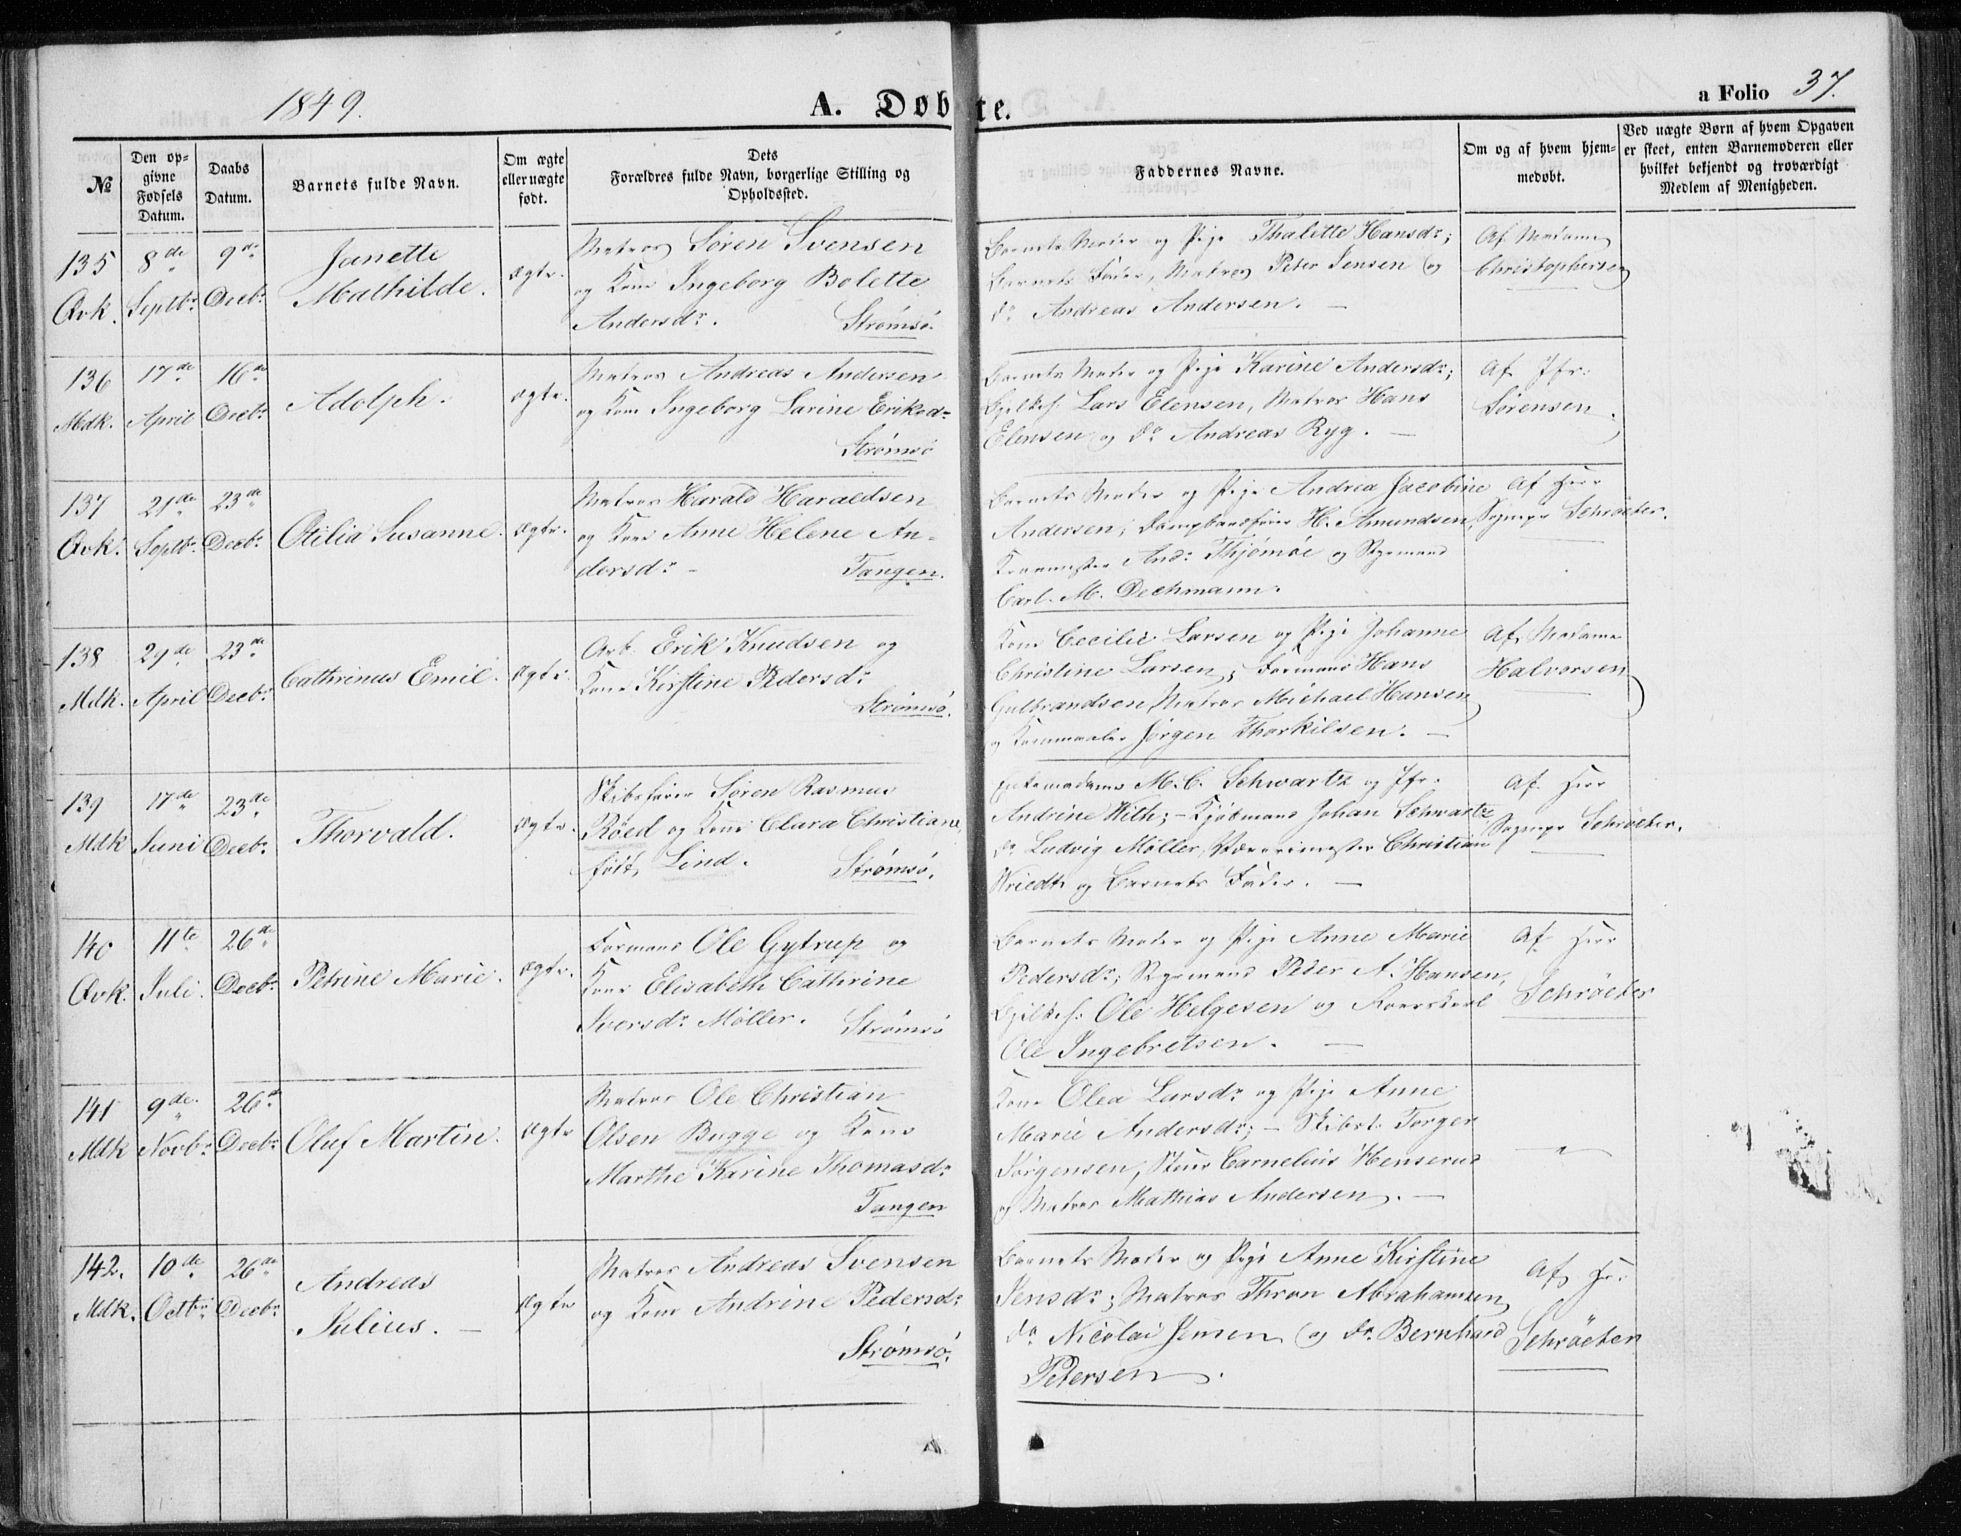 1849.
A. Døbte.
a Folio 37.
№
Den opgivne Fødsels Datum.
Daabs Datum.
Barnets fulde Navn.
Om ægte eller uægte født.
Dets Forældres fulde Navn, borgerlige Stilling og Opholdssted.
Faddernes Navne.
Om og af hvem hjemmedøbt.
Ved uægte Børn af hvem Opgaven er skeet, enten Barnemoderen eller hvilket bekjendt og troværdigt Medlem af Menigheden.
135 Qvk.
8de Septbr.
9de Decbr.
Janette
Mathilde.
Ægte.
Matros Søren Svensen
og Kone Ingeborg Bolette
Andersdr. Strømsø.
Barnets Moder og Pige Thalette Hansdr;
Barnets Fader, Matros Peter Jensen og
do Andreas Andersen. —
Af Madame
Christophersen
136 Mdk.
17de April
16de Decbr.
Adolph.
Ægte.
Matros Andreas Andersen
og Kone Ingeborg Larine Eriksdr.
Strømsø
Barnets Moder og Pige Karine Andersdr;
Lars Elensen, Matros Hans
Elensen og do Andreas Ryg. —
Af Jfr.
Sørensen.
137 Qvk.
21de Septbr.
23de Decbr.
Otilia Susanne.
Ægte.
Matros Harald Haraldsen
og Kone Anne Helene An-
dersdr. — Tangen.
Barnets Moder og Pige Andrea Jacobine
Andersen; Dampbaadfører H. Amundsen,
Andr. Thjømøe og Styrmand
Carl. M. Dechmann.
Af Herr
Sognepr Schrøeter.
138 Mdk.
29de April
23de Decbr.
Cathrinus Emil.
Ægte.
Arb. Erik Knudsen og
Kone Kirstine Pedersdr.
Strømsø.
Kone Cecilie Larsen og Pige Johanne
Christine Larsen; Formand Hans
Gulbrandsen, Matros Michael Hansen
og Jørgen Thorkilsen. —
Af Madame
Halvorsen
139 Mdk
17de Juni
23de Decbr.
Thorvald.
Ægte.
Skibsfører Søren Rasmus
Røed og Kone Clara Christiane,
født Lind. Strømsø.
M. C. Schwartz og Jfr.
Andrine With; — Kjøbmand Johan Schwartz,
do Ludvig Møller, Christian
Wriedt og Barnets Fader. —
Af Herr
Sognepr Schrøeter.
140 Qvk.
11te Juli.
26de Decbr.
Petrine Marie.
Ægte.
Formand Ole Gytrup og
Kone Elisabeth Cathrine
Iversdr. Møller. Strømsø
Barnets Moder og Pige Anne Marie
Pedersdr; Styrmand Peder A. Hansen,
Ole Helgesen og
Ole Ingebretsen. —
Af Herr
Schrøeter
141 Mdk
9de Novbr.
26de Decbr.
Oluf Martin.
Ægte
Matros Ole Christian
Olsen Bugge og Kone
Marthe Karine Thomasdr.
Tangen
Kone Olea Larsdr. og Pige Anne
Marie Andersdr; — Skibst. Torger
Jørgensen, Cornelius Henserud
og Matros Mathias Andersen. —
— " —
142. Mdk.
10de Octbr.
26de Decbr.
Andreas
Julius. —
Ægte
Matros Andreas Svensen
og Kone Andrine Pedersdr.
Strømsø.
Barnets Moder og Pige Anne Kirstine
Jensdr; Matros Thron Abrahamsen,
do Nicolai Jensen og do Bernhard
Petersen.
Af Hr.
Schrøeter